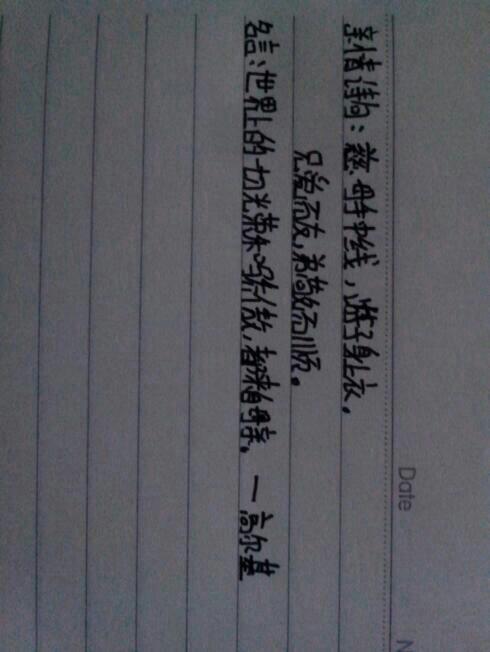 Date
亲情诗句：慈母手中线，游子身上衣。
兄爱而友，弟敬而顺。
名言：世界上的一切光荣和骄傲，都来自母亲。—高尔基